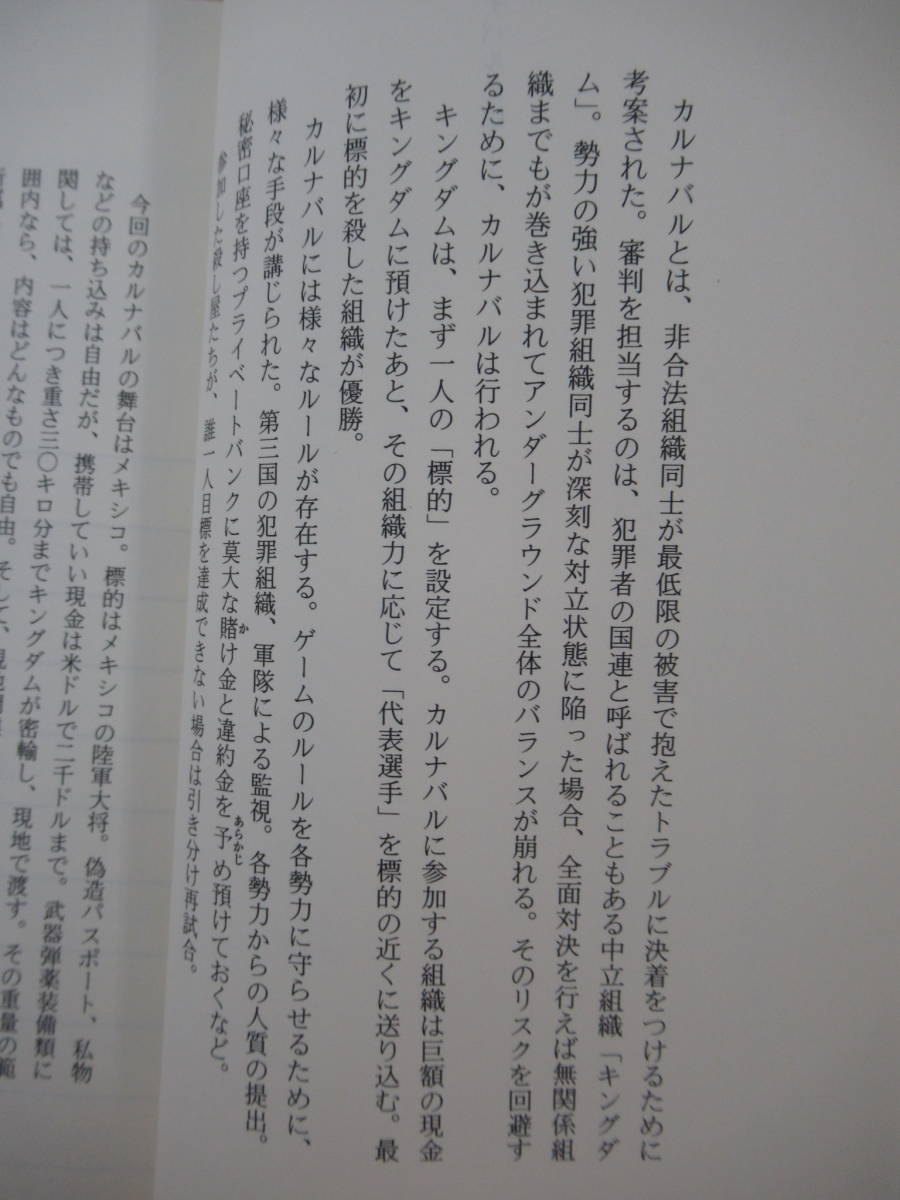 カルナバルとは、非合法組織同士が最低限の被害で抱えたトラブルに決着をつけるために
考案された。審判を担当するのは、犯罪者の国連と呼ばれることもある中立組織「キングダ
ム」。勢力の強い犯罪組織同士が深刻な対立状態に陥った場合、全面対決を行えば無関係組
織までもが巻き込まれてアンダーグラウンド全体のバランスが崩れる。そのリスクを回避す
るために、カルナバルは行われる。
キングダムは、まず一人の「標的」を設定する。カルナバルに参加する組織は巨額の現金
をキングダムに預けたあと、その組織力に応じて「代表選手」を標的の近くに送り込む。最
初に標的を殺した組織が優勝。
カルナバルには様々なルールが存在する。ゲームのルールを各勢力に守らせるために、
様々な手段が講じられた。第三国の犯罪組織、軍隊による監視。各勢力からの人質の提出。
秘密口座を持つプライベートバンクに莫大な賭け金と違約金を予め預けておくなど。
参加した殺し屋たちが、誰一人目標を達成できない場合は引き分け再試合。
今回のカルナバルの舞台はメキシコ。標的はメキシコの陸軍大将。偽造パスポート、私物
などの持ち込みは自由だが、携帯していい現金は米ドルで二千ドルまで。武器弾薬装備類に
関しては、一人につき重さ三〇キロ分までキングダムが密輸し、現地で渡す。その重量の範
囲内なら、内容はどんなものでも自由。そして、